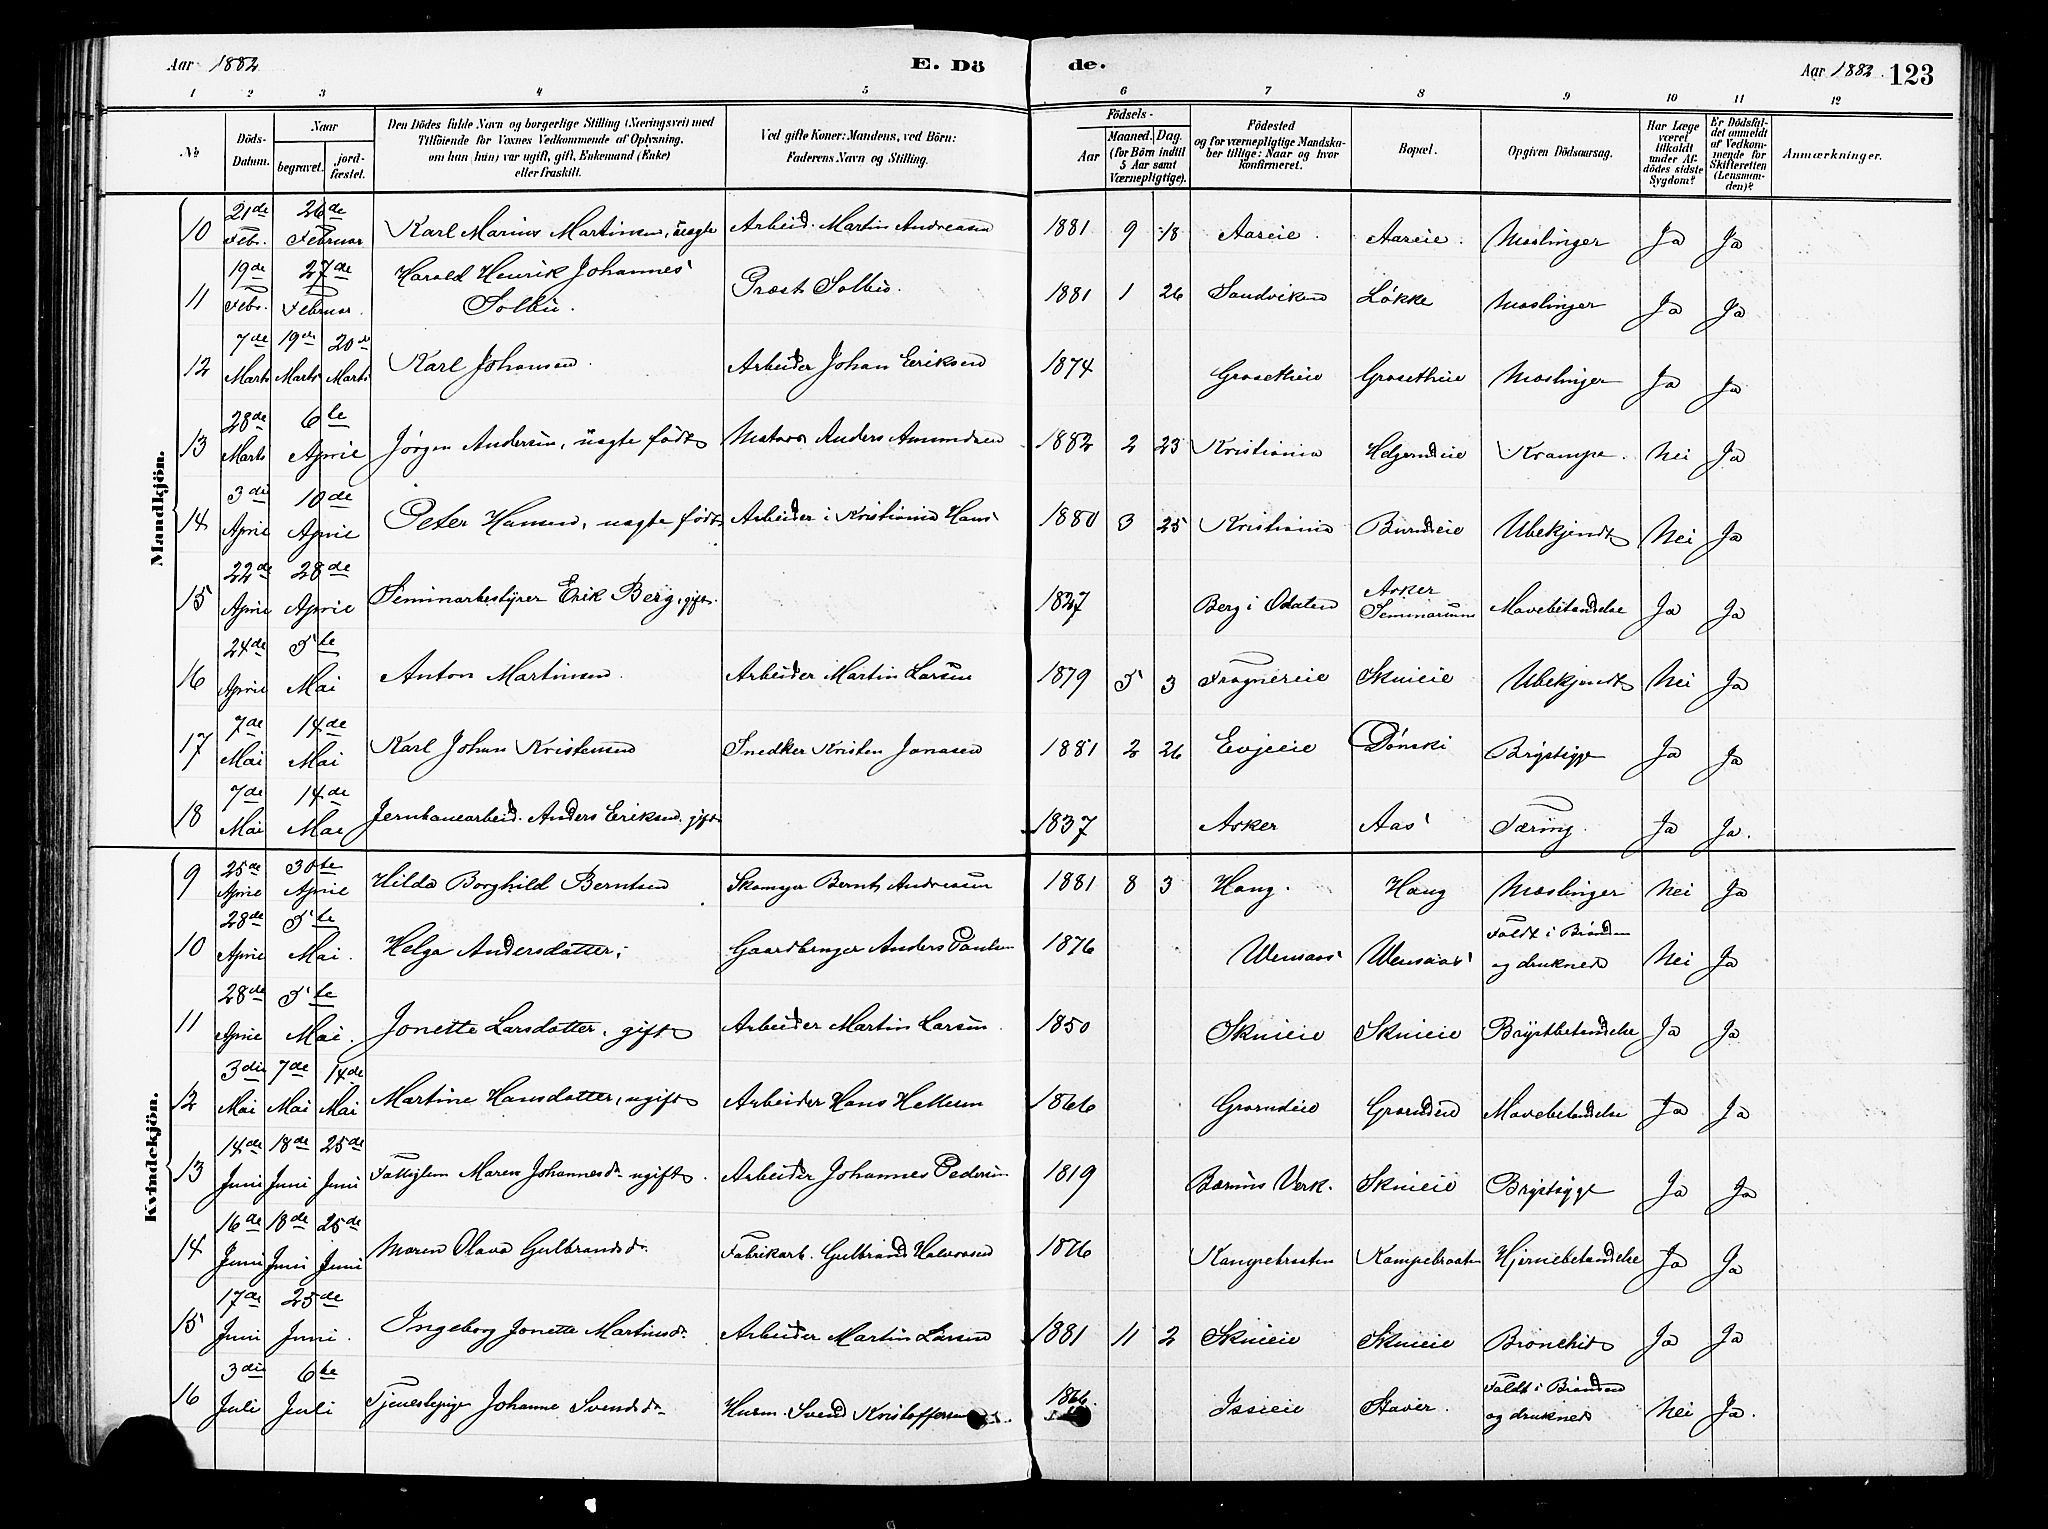 Aar 1882
E. Dö
de.
Aar 1882. 123
1 2 3 4 5 6 7 8 9 10 11 12
№
Döds-Datum.
Naar
begravet.
jord-fæstet.
Den Dödes fulde Navn og borgerlige Stilling (Næringsvei) med
Tilföiende for Voxnes Vedkommende af Oplysning,
om han (hun) var ugift, gift, Enkemand (Enke)
eller fraskilt.
Ved gifte Koner: Mandens, ved Börn:
Faderens Navn og Stilling.
Födsels-
Aar
Maaned. Dag.
(for Börn indtil
5 Aar samt
Værnepligtige).
Födested
og for værnepligtige Mandska-
ber tillige: Naar og hvor
konfirmeret.
Bopæl.
Opgiven Dödsaarsag.
Har Læge
været
tilkaldt
under Af-
dödes sidste
Sygdom?
Er Dödsfal-
det anmeldt
af Vedkom-
mende for
Skifteretten
(Lensman-
den)?
Anmærkninger.
Mandkjön.
10 21de Febr. 26de Februar Karl Marius Martinsen, uægte Arbeid. Martin Andreasen 1881 9 18 Aaseie. Aaseie. Mæslinger Ja Ja
11 19de Febr. 27de Februar. Harald Henrik Johannes Solbu. Præst Solbu. 1881 1 26 Sandviken Løkke Mæslinger Ja Ja
12 7de Marts 19de Marts 20de Marts Karl Johansen. Arbeider Johan Eriksen 1874 Grosetheie Grosetheie Mæslinger Ja Ja
13 28de Marts 6te April Jørgen Andersen, uægte født Matros Anders Amundsen 1882 2 23 Kristiania Kramper. Nei Ja
14 3die April 10de April Peter Hansen, uægte født Arbeider i Kristiania Hans 1880 3 25 Kristiania Burudeie Ubekjendt Nei Ja
15 22de April 28de April Seminarbestyrer Erik Berg, gift. 1827 Berg i Odalen Asker Seminarium Mavebetændelse Ja Ja
16 24de April 5te Mai Anton Martinsen. Arbeider Martin Larsen 1879 5 3 Frognereie Skuieie Ubekjendt Nei Ja
17 7de Mai 14de Mai Karl Johan Kristensen Snedker Kristen Jonasen 1881 2 26 Evjeeie Dønski Brystsyge Ja Ja
18 7de Mai 14de Mai Jernbanearbeid. Anders Eriksen. gift 1837 Asker Aas Tæring. Ja Ja.
Kvindekjön.
9 25de April 30te April Hilda Borghild Berntsen Skomager Bernt Andreasen 1881 8 3 Haug. Haug Mæslinger Nei Ja
10 28de April 5te Mai. Helga Andersdatter. Gaardbruger Anders Paulsen 1876 Wensaas Wensaas Faldt i Brønden og druknede Nei Ja
11 28de April 5te Mai. Jonette Larsdatter, gift Arbeider Martin Larsen. 1850 Skuieie Skuieie Brystbetændelse Ja Ja
12 3die Mai 7de Mai 14de Mai Martine Hansdatter, ugift Arbeider Hans Hellesen 1866 Grorudeie Grorudeie Mavebetændelse Ja Ja
13 14de Juni 18de Juni 25de Juni Fattiglem Maren Johannesd. ugift. Arbeider Johannes Pedersen 1819 Bærums Verk. Skuieie Brystsyge Ja Ja
14 16de Juni 18de Juni 25de Juni Maren Olava Gulbrandsd. Fabrikarb. Gulbrand Halvorsen 1876 Kampebraaten Kampebraaten Hjernebetændelse Ja Ja
15 17de Juni 25de Juni. Ingeborg Jonette Martinsd. Arbeider Martin Larsen 1881 11 2 Skuieie Skuieie Bronchit Ja Ja
16 3die Juli 6te Juli Tjenestepige Johanne Svendsd. Husm. Svend Kristoffersen 1866. Issieie Staver. Faldt i Brønden og druknede Nei Ja.